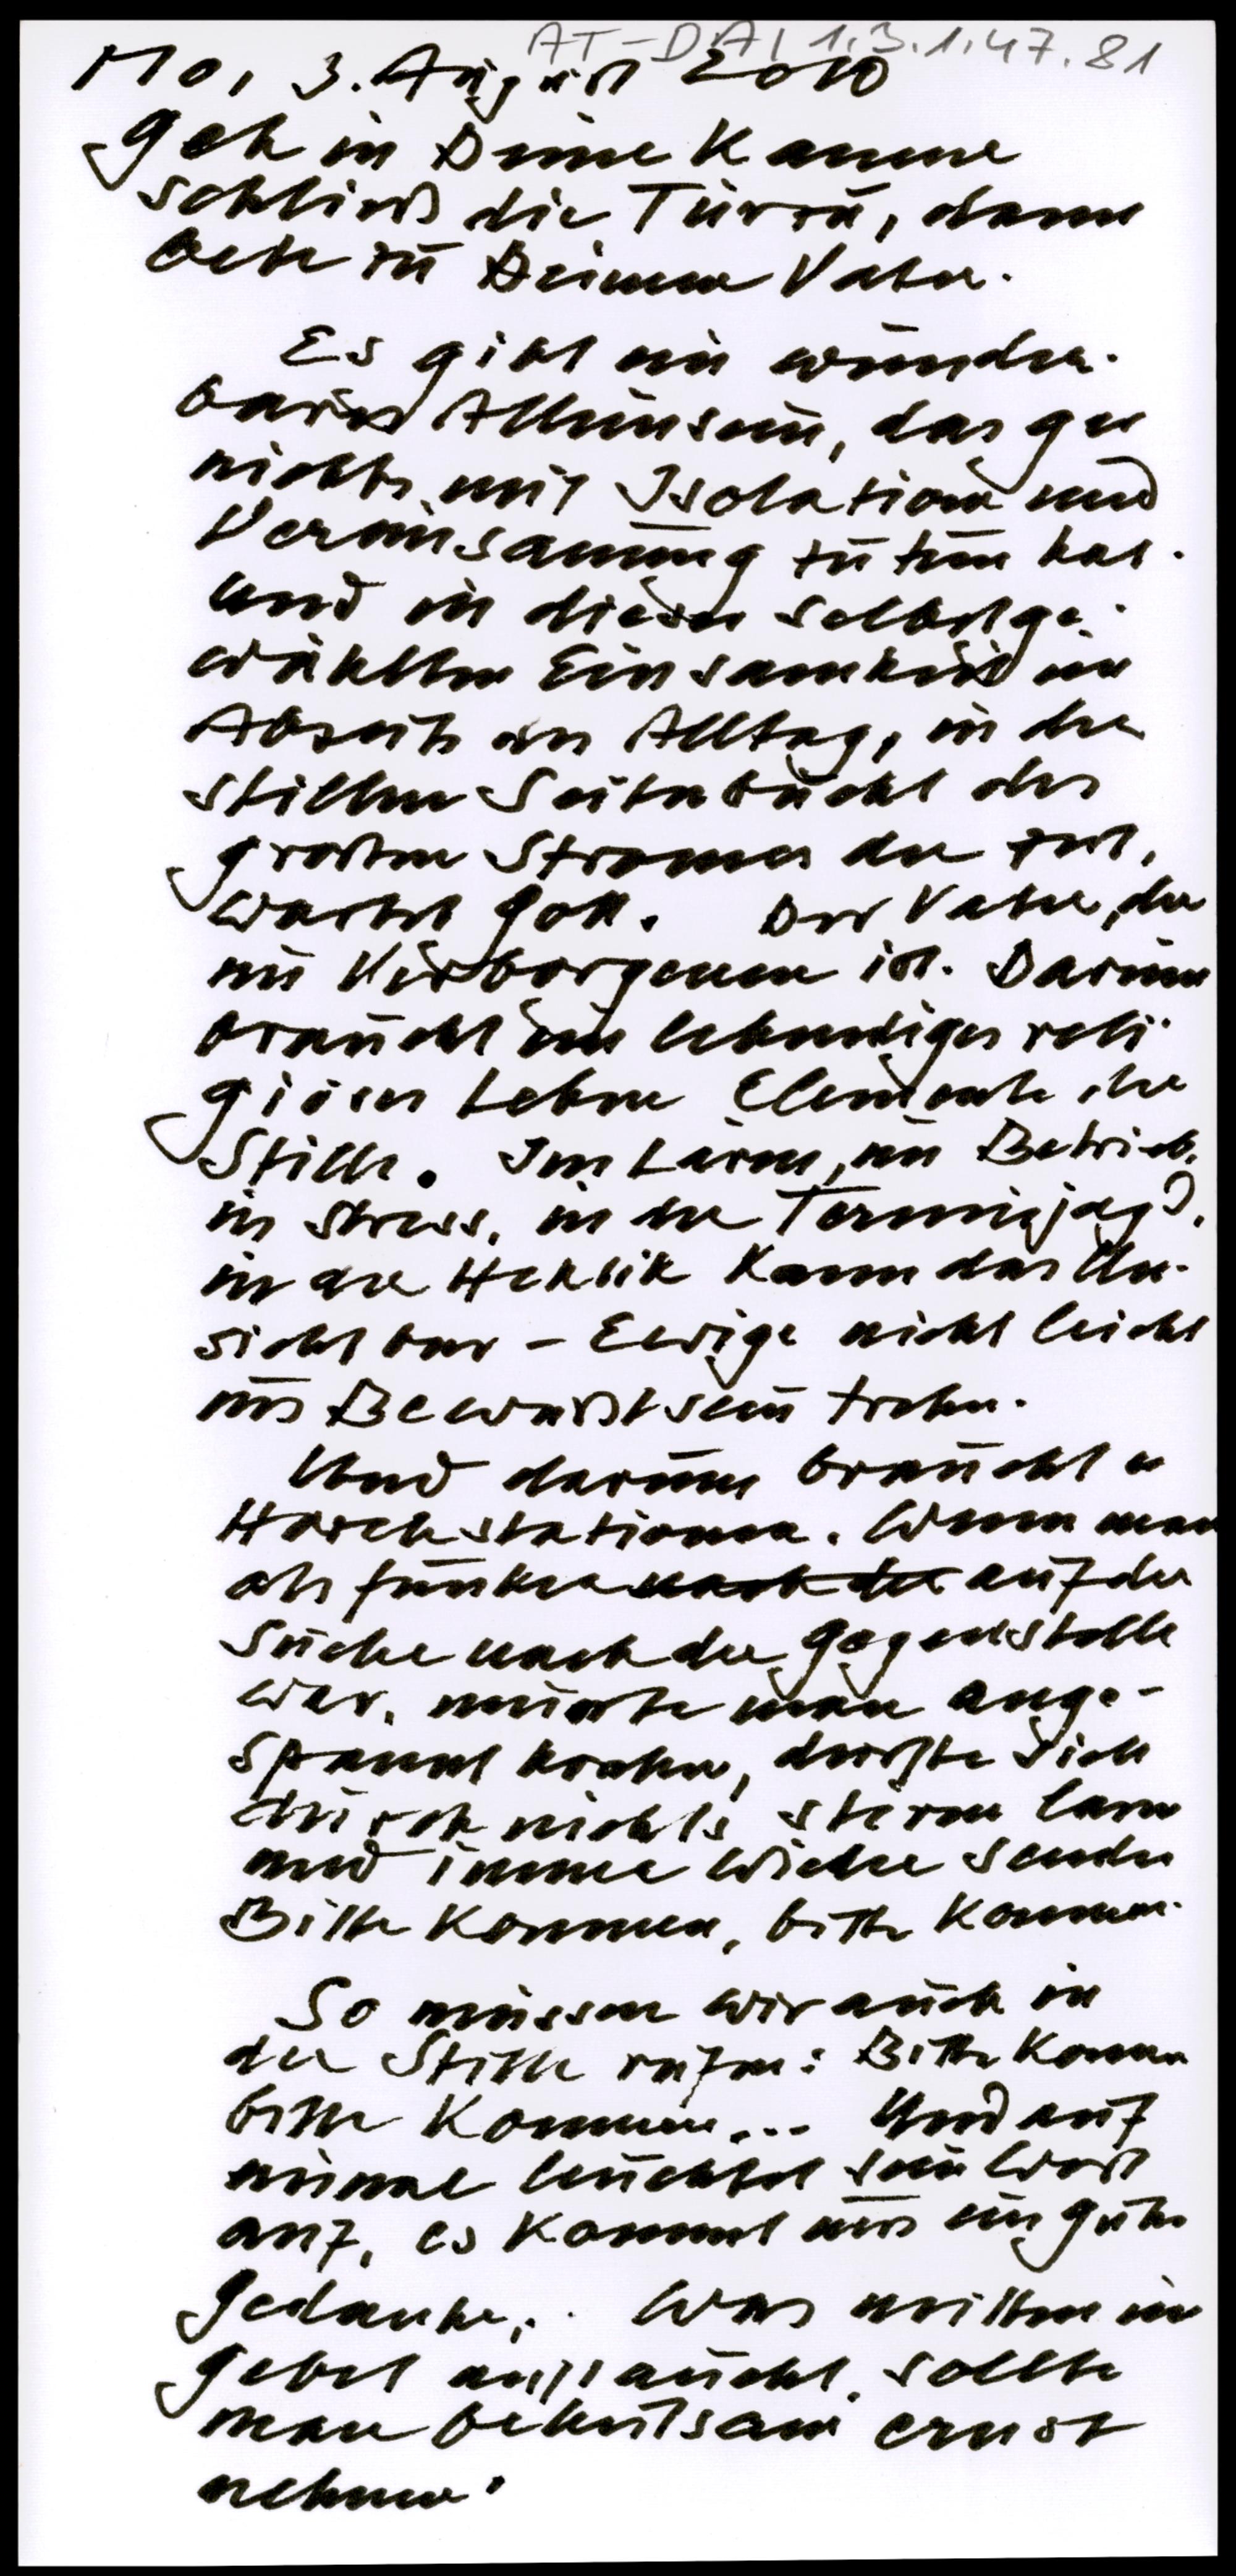 AT-DAI 1.3.1.47.81
Mo, 3. August 2010
Geh in Deine Kammer
schließ die Türe zu, dann
bete zu Deinem Vater.
Es gibt ein wunder-
bares Alleinsein, das gar
nichts mit Isolation und
Vereinsamung zu tun hat.
Und in dieser selbstge-
wählten Einsamkeit im
Abseits vom Alltag, in der
stillen Seitenbucht des
großen Stromes der Zeit,
wartet Gott. Der Vater, der
im Verborgenen ist. Darum
braucht ein lebendiges reli-
giöses Leben Elemente der
Stille. Im Lärm, im Betrieb,
im Stress, in der Terminjagd,
in der Hektik kann das Un-
sichtbar-Ewige nicht leicht
ins Bewußtsein treten.
Und darum braucht es
Horchstationen. Wenn man
als Funker nach der auf der
Suche nach der Gegenstelle
war, mußte man ange-
spannt horchen, durfte sich
durch nichts stören lassen
und immer wieder senden
Bitte kommen, bitte kommen.
So müssen wir auch in
der Stille rufen: Bitte kommen
bitte kommen... Und auf
einmal leuchtet sein Wort
auf, es kommt uns ein guter
Gedanke,. Was mitten im
Gebet auftaucht, sollte
man behutsam ernst
nehmen.